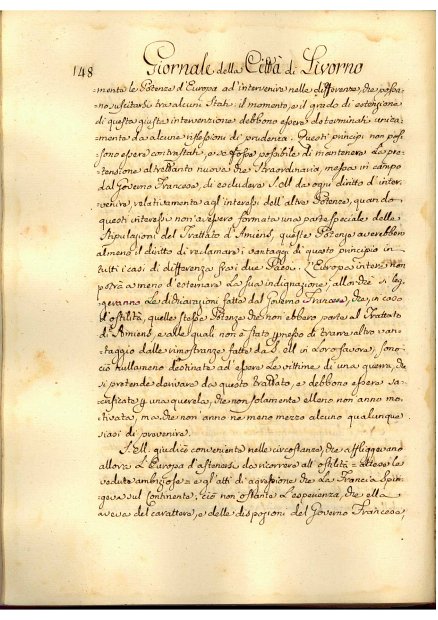 148 Giornale della Città di Livorno
menta le Potenze d'Europa ad'intervenire nelle differenze, che possa-
=no suscitarsi tra alcuni Stati: il momento, e il grado di estenzione
di questa giusta intervenzione debbono essere determinati unica-
=menta da alcune riflessioni di prudenza. Questi principi non pos-
sono essere contrastati, e se fosse possibile di mantenere la pre-
=tensione altrettanto nuova che straordinaria, messa in campo
dal Governo Francese, di escludere S. M. da ogni diritto d'inter-
venire relativamente agl'interessi dell'altre Potenze, quando
questi interessi non avessero formata una parte speciale delle
Stipulazioni del Trattato d'Amiens, quelle Potenze averebbero
almeno il diritto di reclamare i vantaggi di questo principio in
tutti i casi di differenza fra i due Paesi. L'Europa intera non
potrà a meno d'esternare la sua indignazione, allorchè si leg-
geranno le dichiarazioni fatte dal Governo Francese, che, in caso
d'ostilità, quelle stesse Potenze che non ebbero parte al Trattato
di Amiens, e alle quali non è stato permesso di trarre altro van-
taggio dalle rimostranze fatte da S. M. in loro favore, sono
ciò nullameno destinate ad essere le vittime di una guerra, che
si pretende derivare da questo trattato, e debbono essere sa-
crificate per una querela, che non solamente elleno non anno mo-
tivata, ma che non anno ne meno mezzo alcuno qualunque
siasi di prevenire.
S. M. giudicò conveniente nelle circostanze, che affliggevano
allora l'Europa d'astenersi da ricorrere all'ostilità = attese le
vedute ambiziose = e gl'atti di agressione che la Francia spin-
geva sul continente; ciò non'ostante l'esperienza, che ella
aveva del carattere, e delle disposizioni del Governo Francese,